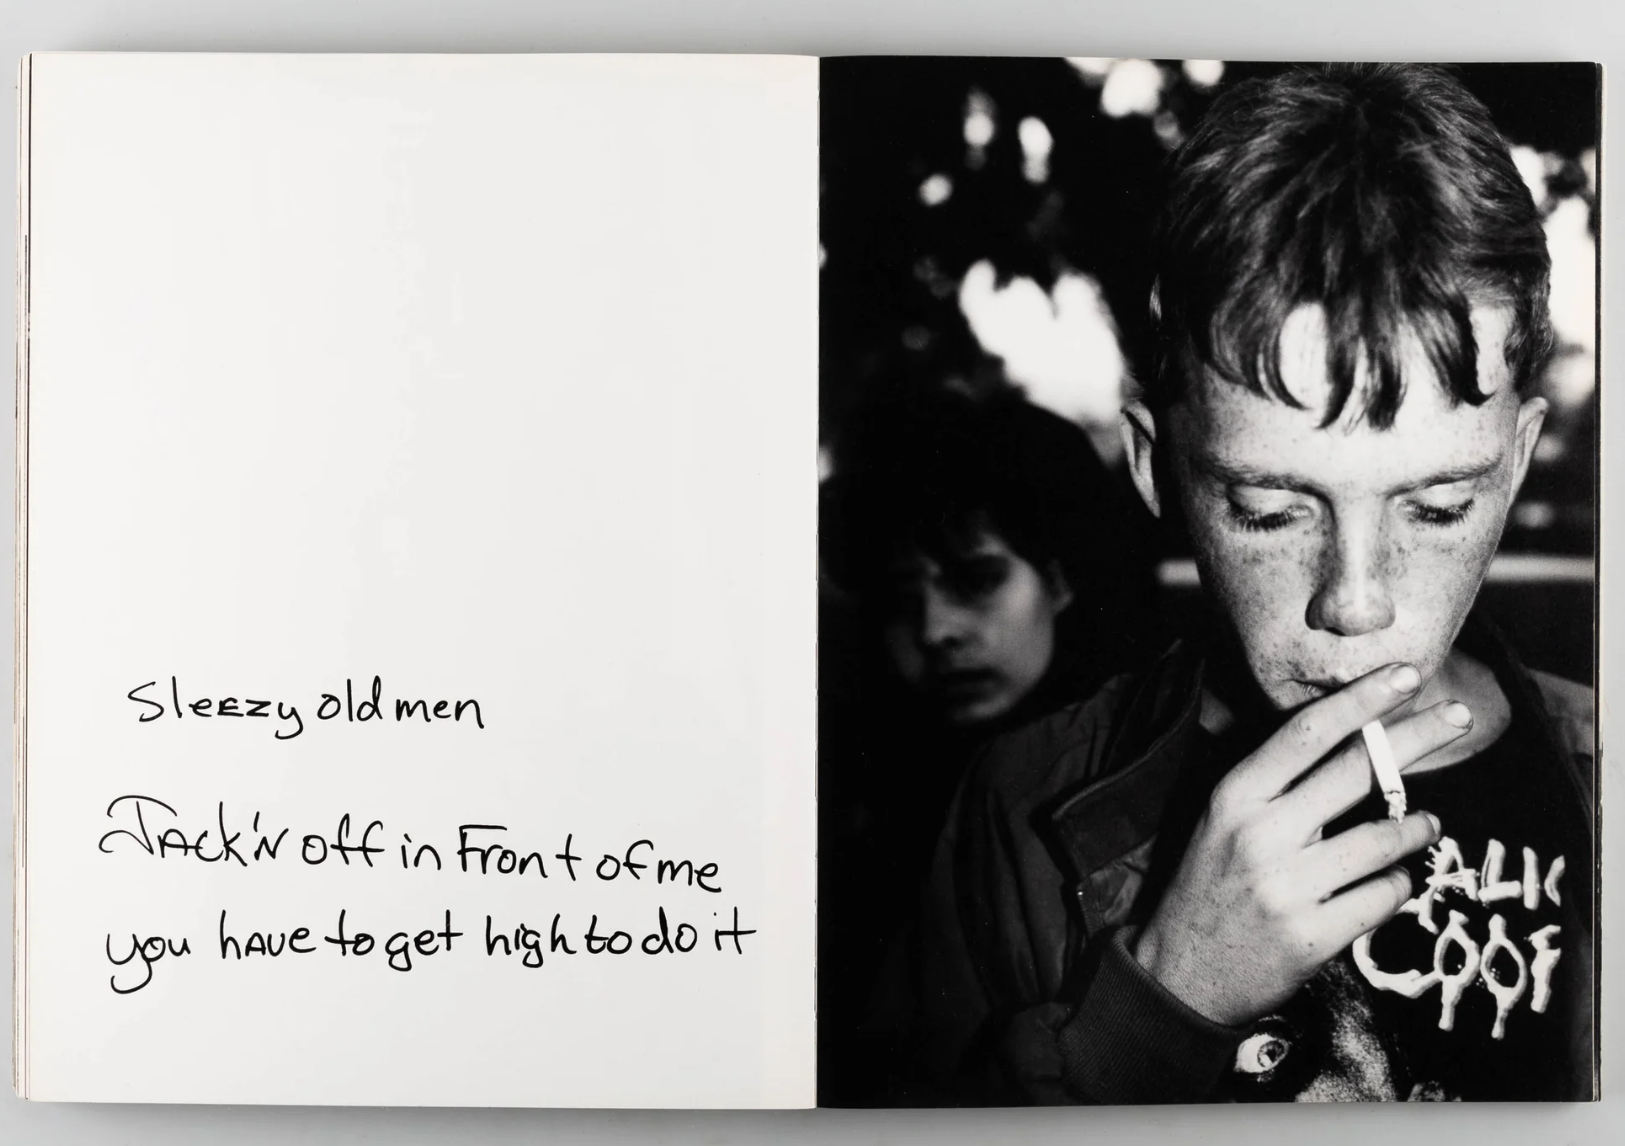 Sleezy old men
Jack'n off in Front of me
you have to get high to do it